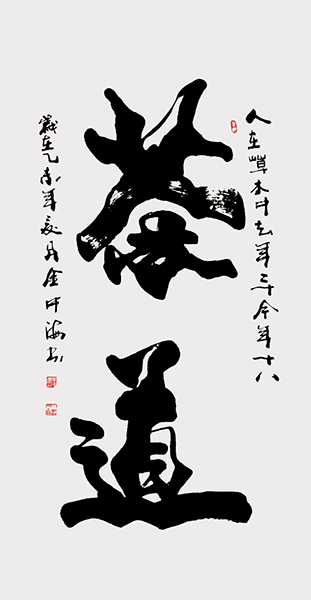 人在草木中去年二十今年十八
茶道
歲在乙未年夏月金中海书